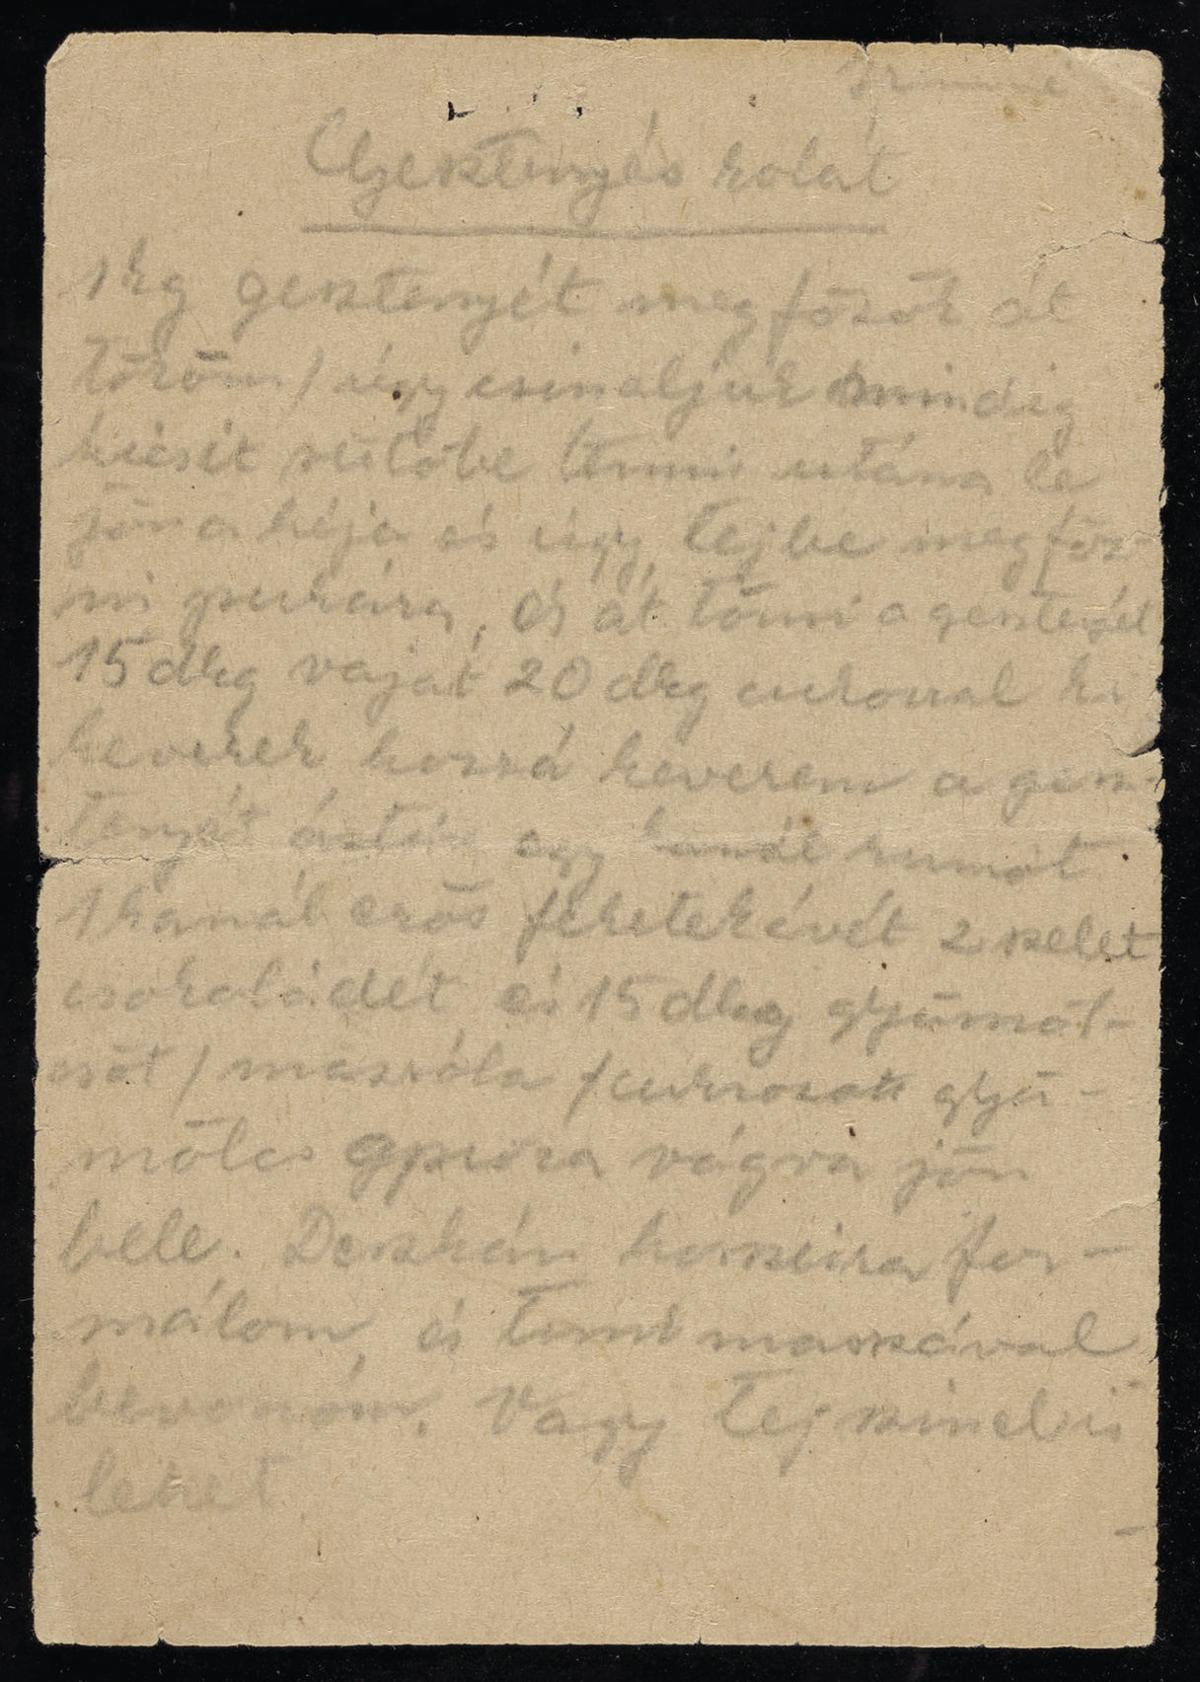 Gesztenyés kolát
1 kg gesztenyét meg főzök át
töröm / úgy csinaljuk mindig
kicsit sütőbe tenni utána le
jön a héja és úgy, tejbe meg főz-
ni puhára, és át törni a gesztenyét
15 dkg vajat 20 dkg cukorral ki
keverek hozzá keverem a gesz-
tenyét egy kanál rumot
1 kanál erős feketekávét 2 szelet
csokoládét és 15 dkg gyümöl-
csöt / cukrozott gyü-
mölcs apróra vágva jön
bele. Deszkán hosszúra for-
málom, és tunk masszával
bevonom. Vagy tejszinel is
lehet